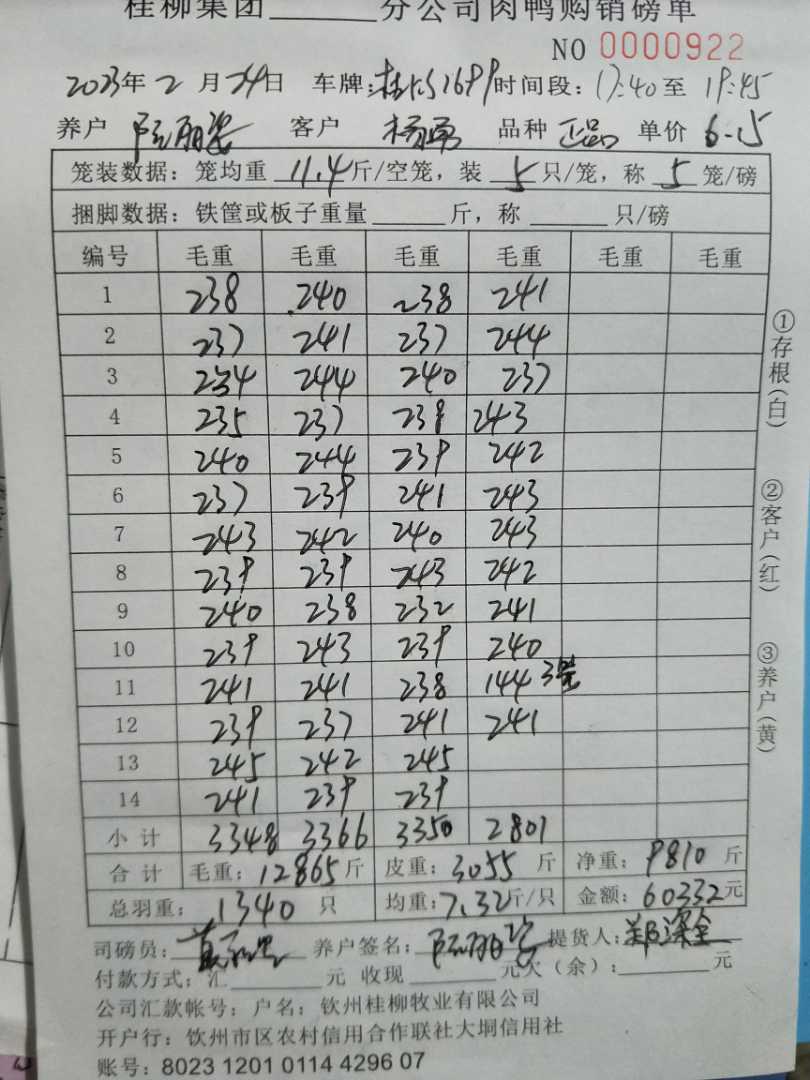 桂柳集团______分公司肉鸭购销磅单
NO 0000922
2023年2月24日 车牌: 时间段:17:40至19:45
养户 客户 杨勇 品种 正品 单价 6.15
笼装数据：笼均重 11.4斤/空笼，装 5只/笼，称 5笼/磅
捆脚数据：铁筐或板子重量______斤，称______只/磅
编号 毛重 毛重 毛重 毛重 毛重 毛重
1 238 240 238 241
2 237 241 237 244
3 234 244 240 237
4 235 237 238 243
5 240 244 239 242
6 237 239 241 243
7 243 242 240 243
8 239 239 243 242
9 240 238 232 241
10 239 243 239 240
11 241 241 238 144 3笼
12 239 237 241 241
13 245 242 245
14 241 239 239
小计 3348 3366 3350 2801
合计 毛重：12865斤 皮重：3055斤 净重：9810斤
总羽重：1340只 均重：7.32斤/只 金额：60332元
司磅员: 养户签名: 提货人:
付款方式：汇______元 收现______元欠（余）:______元
公司汇款帐号：户名：钦州桂柳牧业有限公司
开户行：钦州市区农村信用合作联社大垌信用社
账号：8023 1201 0114 4296 07
①存根(白)
②客户(红)
③养户(黄)